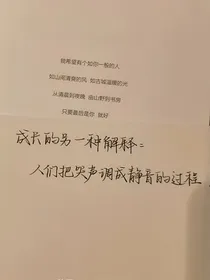 我希望有个如你一般的人
如山间清爽的风 如古城温暖的光
从清晨到夜晚 由山野到书房
只要最后是你 就好
成长的另一种解释：
人们把哭声调成静音的过程